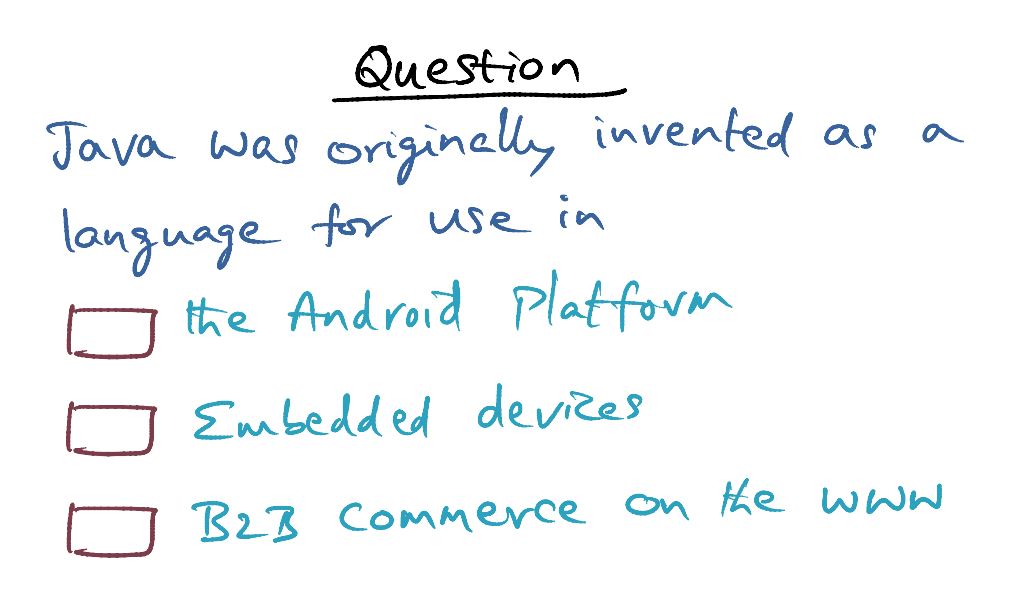 Question
Java was originally invented as a
language for use in
the Android Platform
Embedded devices
B2B Commerce on the www